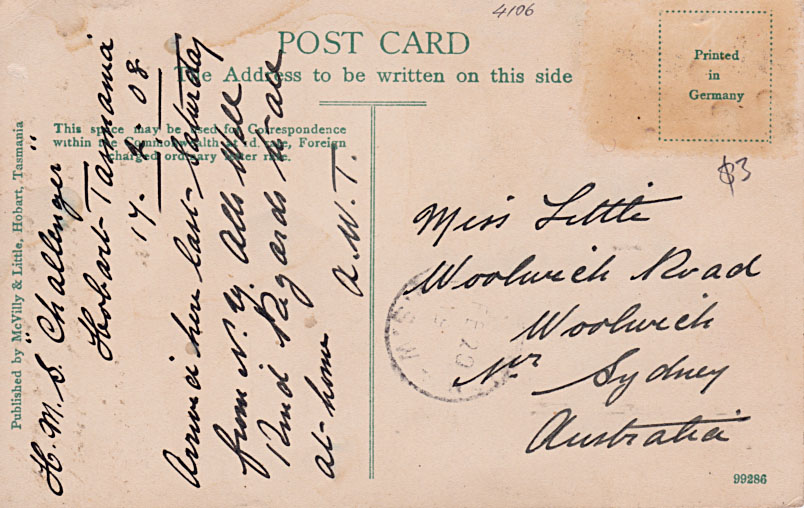 4106
POST CARD
The Address to be written on this side
Printed
in
Germany
This space may be used for Correspondence
within the Commonwealth at 1d. rate, Foreign
charged ordinary letter rate.
Published by McVilly & Little, Hobart, Tasmania
H.M.S. "Challenger"
Hobart-Tasmania
17. 2. 08
Arrived here last-Saturday
from N.Z. All Well
Kind Regards to all
at-home
A.W.T.
$3
Miss Little
Woolwich Road
Woolwich
Nr Sydney
Australia
99286